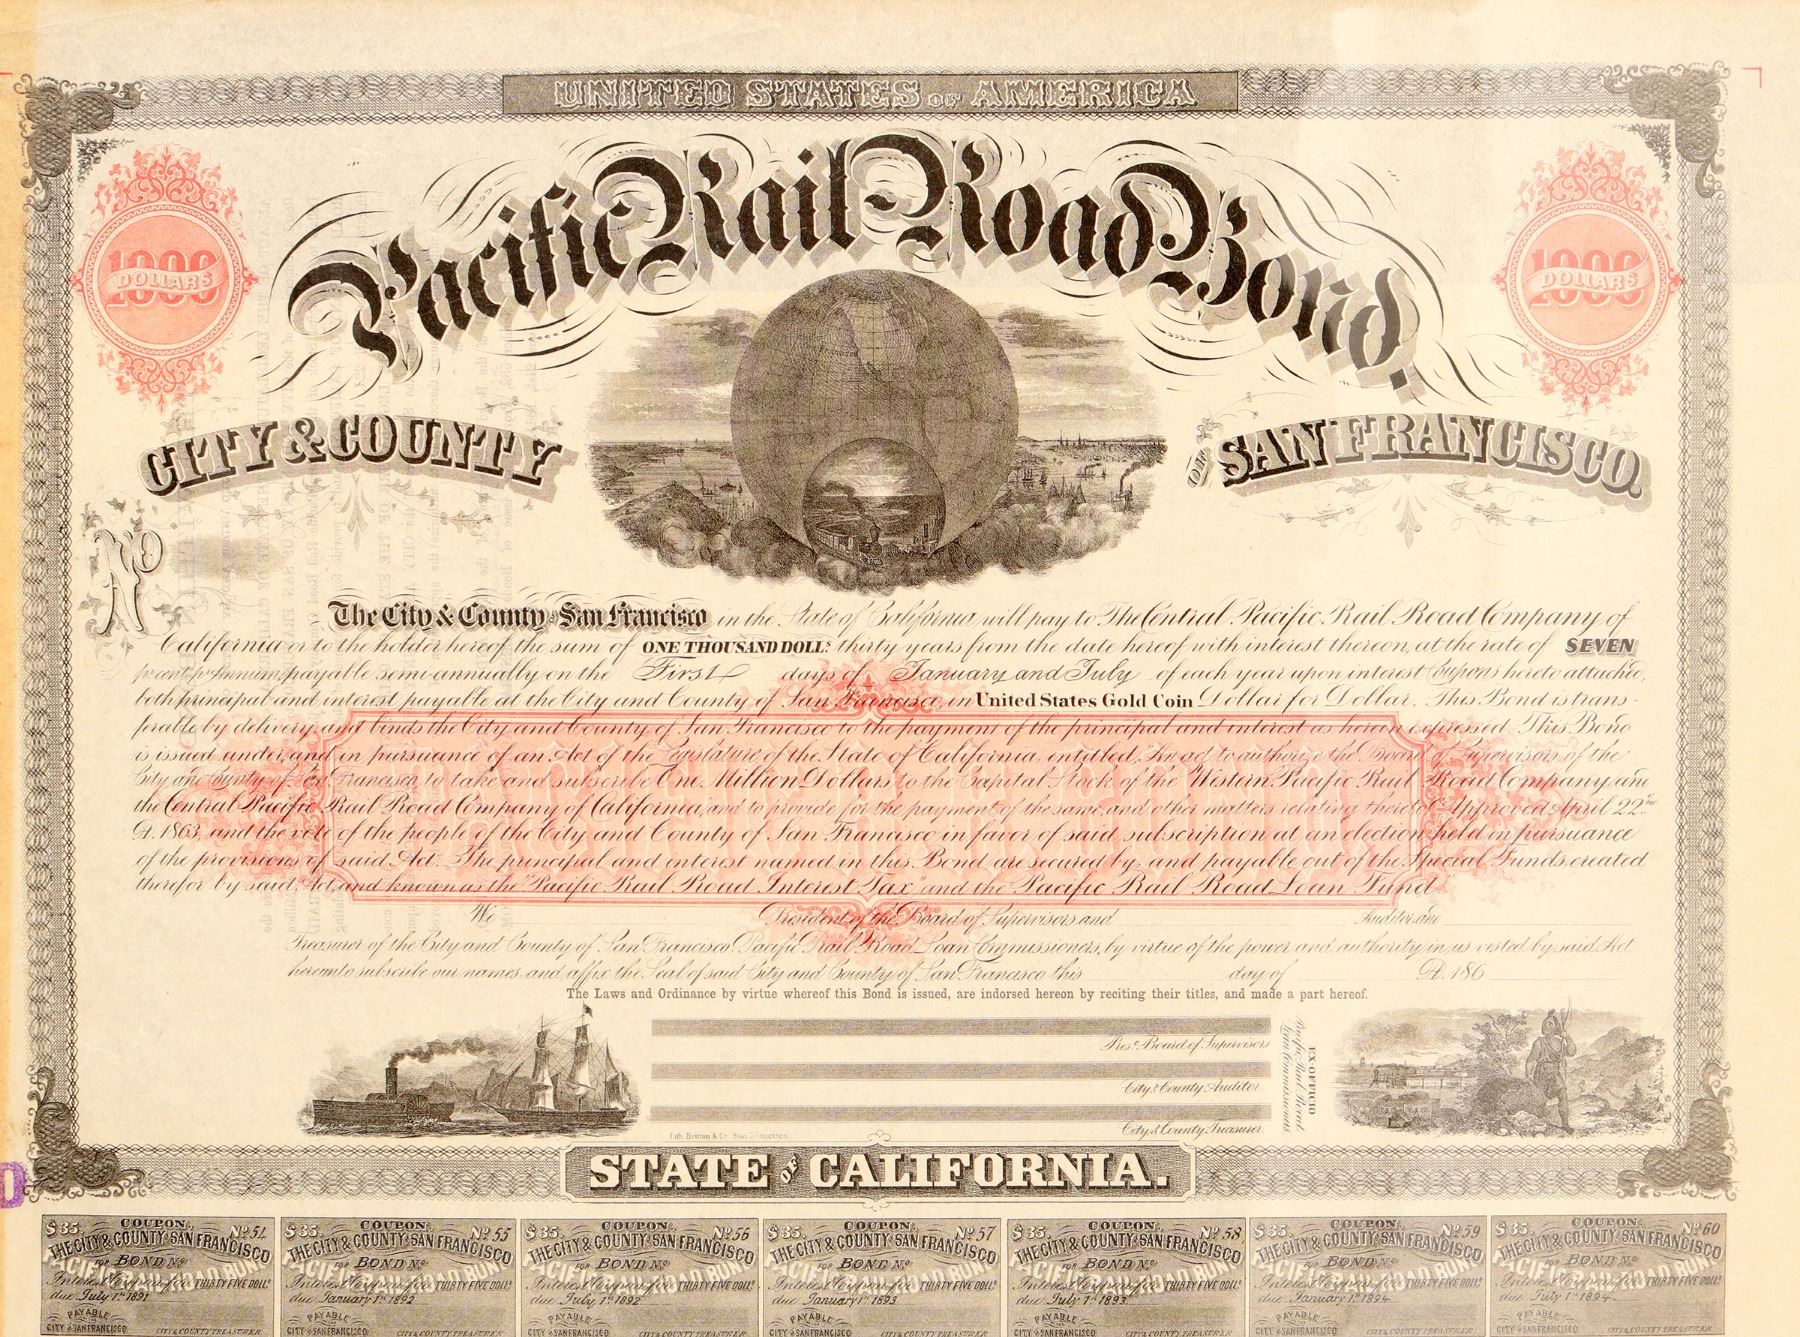 UNITED STATES OF AMERICA
Pacific Rail Road Bond.
1000
DOLLARS
1000
DOLLARS
CITY & COUNTY OF SAN FRANCISCO.
No
The City & County of San Francisco in the State of California, will pay to The Central Pacific Rail Road Company of
California or to the holder hereof the sum of ONE THOUSAND DOLLS thirty years from the date hereof with interest thereon, at the rate of SEVEN
per cent per annum, payable semi-annually on the First days of January and July of each year upon interest Coupons hereto attached,
both principal and interest payable at the City and County of San Francisco, in United States Gold Coin Dollar for Dollar. This Bond is trans-
ferable by delivery, and binds the City and County of San Francisco to the payment of the principal and interest as herein expressed. This Bond
is issued under, and in pursuance of an Act of the Legislature of the State of California, entitled, An act to authorize the Board of Supervisors of the
City and County of San Francisco to take and subscribe One Million Dollars to the Capital Stock of the "Western Pacific Rail Road Company, and
the Central Pacific Rail Road Company of California, and to provide for the payment of the same, and other matters relating thereto" Approved April 22nd
A. 1863, and the vote of the people of the City and County of San Francisco in favor of said subscription at an election held in pursuance
of the provisions of said Act. The principal and interest named in this Bond are secured by, and payable out of the Special Funds created
therefor by said Act, and known as the "Pacific Rail Road Interest Tax" and the "Pacific Rail Road Loan Fund"
We President of the Board of Supervisors and Auditor, and
Treasurer of the City and County of San Francisco, Pacific Rail Road Loan Commissioners, by virtue of the power and authority in us vested by said Act
hereunto subscribe our names, and affix the Seal of said City and County of San Francisco this day of A. 186
The Laws and Ordinance by virtue whereof this Bond is issued, are indorsed hereon by reciting their titles, and made a part hereof.
Prest. Board of Supervisors
City & County Auditor.
City & County Treasurer.
EX-OFFICIO
Pacific Rail Road
Loan Commissioners
Lith. Britton & Co. San Francisco
STATE OF CALIFORNIA.
$35. COUPON. No 54
THE CITY & COUNTY OF SAN FRANCISCO
FOR BOND No
PACIFIC RAIL ROAD BOND
Interest Coupon for THIRTY FIVE DOLLS
due July 1st 1891
PAYABLE
CITY OF SAN FRANCISCO CITY & COUNTY TREASURER
$35. COUPON. No 55
THE CITY & COUNTY OF SAN FRANCISCO
FOR BOND No
PACIFIC RAIL ROAD BOND
Interest Coupon for THIRTY FIVE DOLLS
due January 1st 1892
PAYABLE
CITY OF SAN FRANCISCO CITY & COUNTY TREASURER
$35. COUPON. No 56
THE CITY & COUNTY OF SAN FRANCISCO
FOR BOND No
PACIFIC RAIL ROAD BOND
Interest Coupon for THIRTY FIVE DOLLS
due July 1st 1892
PAYABLE
CITY OF SAN FRANCISCO CITY & COUNTY TREASURER
$35. COUPON. No 57
THE CITY & COUNTY OF SAN FRANCISCO
FOR BOND No
PACIFIC RAIL ROAD BOND
Interest Coupon for THIRTY FIVE DOLLS
due January 1st 1893
PAYABLE
CITY OF SAN FRANCISCO CITY & COUNTY TREASURER
$35. COUPON. No 58
THE CITY & COUNTY OF SAN FRANCISCO
FOR BOND No
PACIFIC RAIL ROAD BOND
Interest Coupon for THIRTY FIVE DOLLS
due July 1st 1893
PAYABLE
CITY OF SAN FRANCISCO CITY & COUNTY TREASURER
$35. COUPON. No 59
THE CITY & COUNTY OF SAN FRANCISCO
FOR BOND No
PACIFIC RAIL ROAD BOND
Interest Coupon for THIRTY FIVE DOLLS
due January 1st 1894
PAYABLE
CITY OF SAN FRANCISCO CITY & COUNTY TREASURER
$35. COUPON. No 60
THE CITY & COUNTY OF SAN FRANCISCO
FOR BOND No
PACIFIC RAIL ROAD BOND
Interest Coupon for THIRTY FIVE DOLLS
due July 1st 1894
PAYABLE
CITY OF SAN FRANCISCO CITY & COUNTY TREASURER